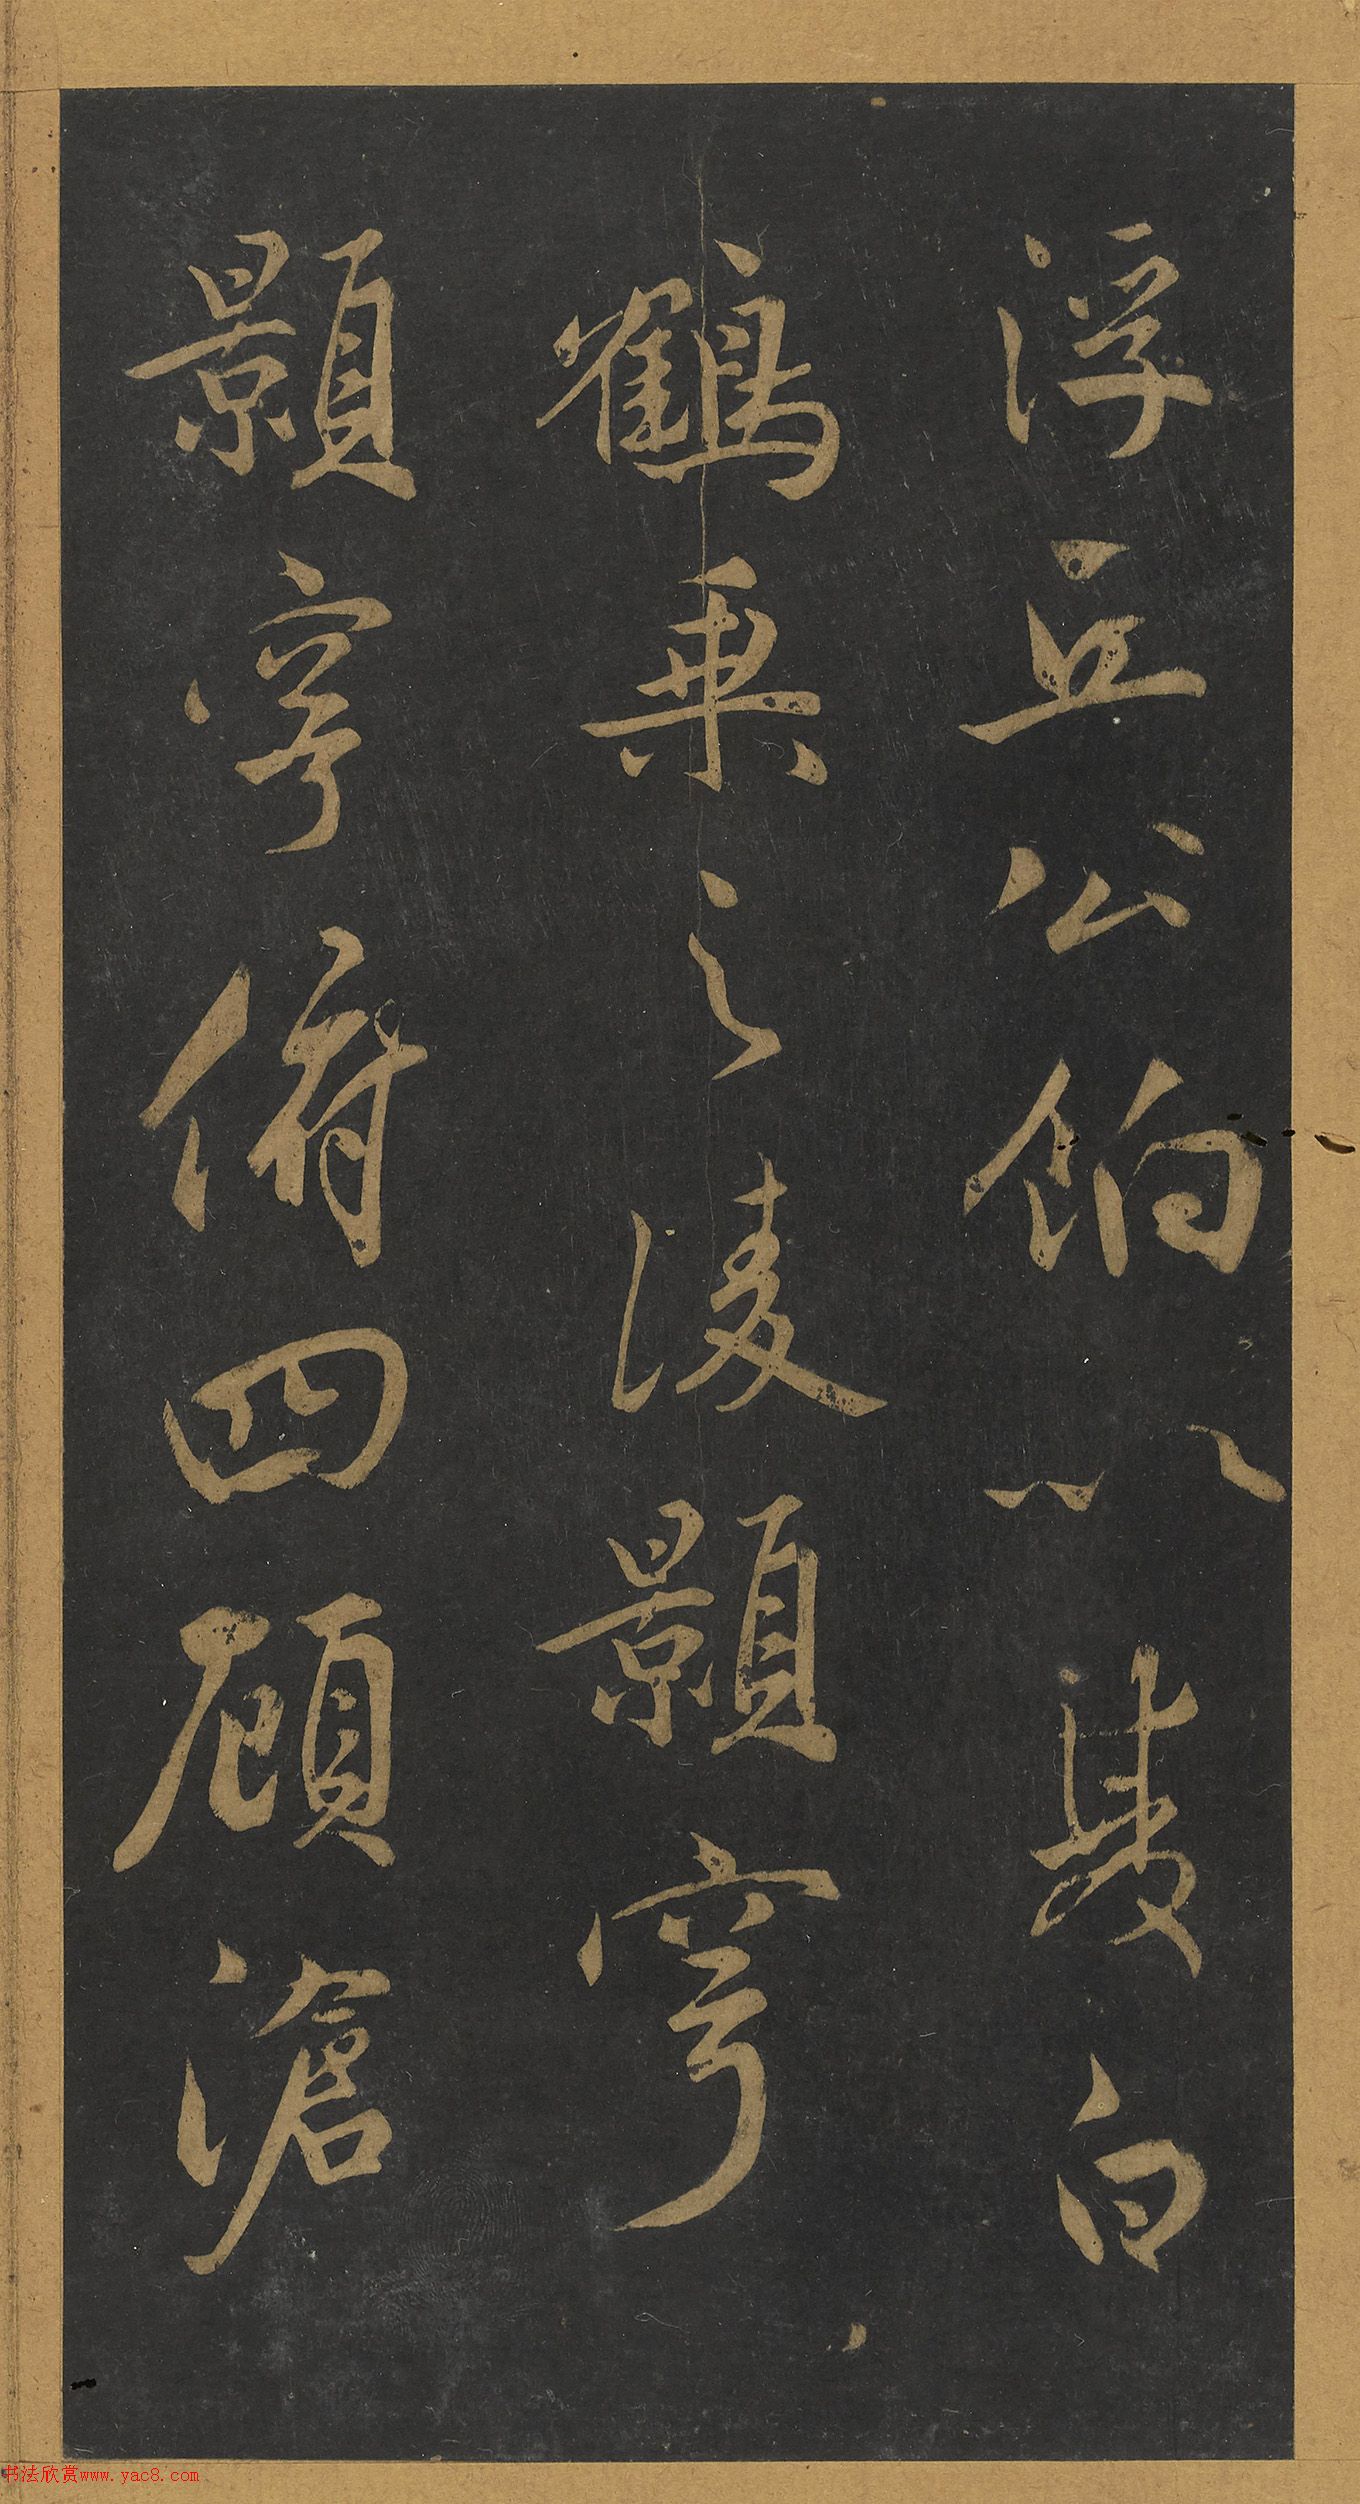 浮丘公餉以雙白
鶴乘之凌顥穹
顥穹俯四顧滄
书法欣赏www.yac8.com